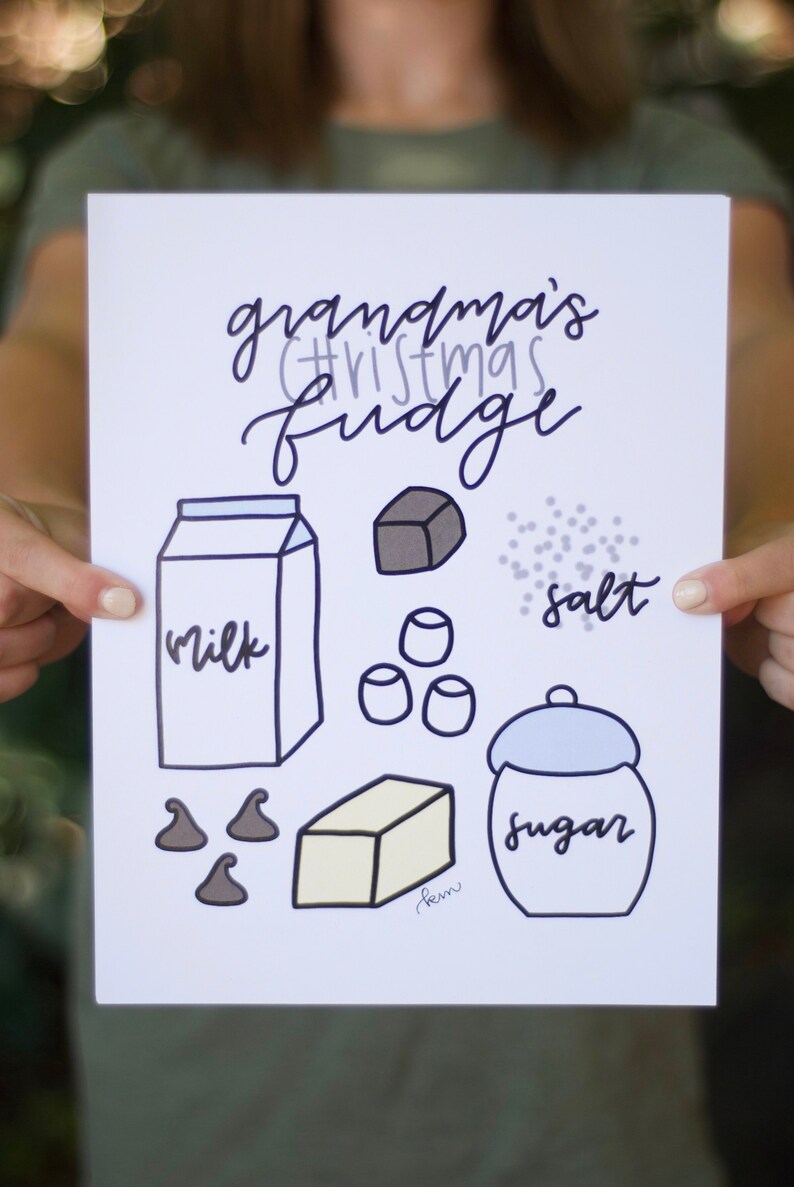 grandma's
CHristmas
fudge
salt
milk
sugar
km